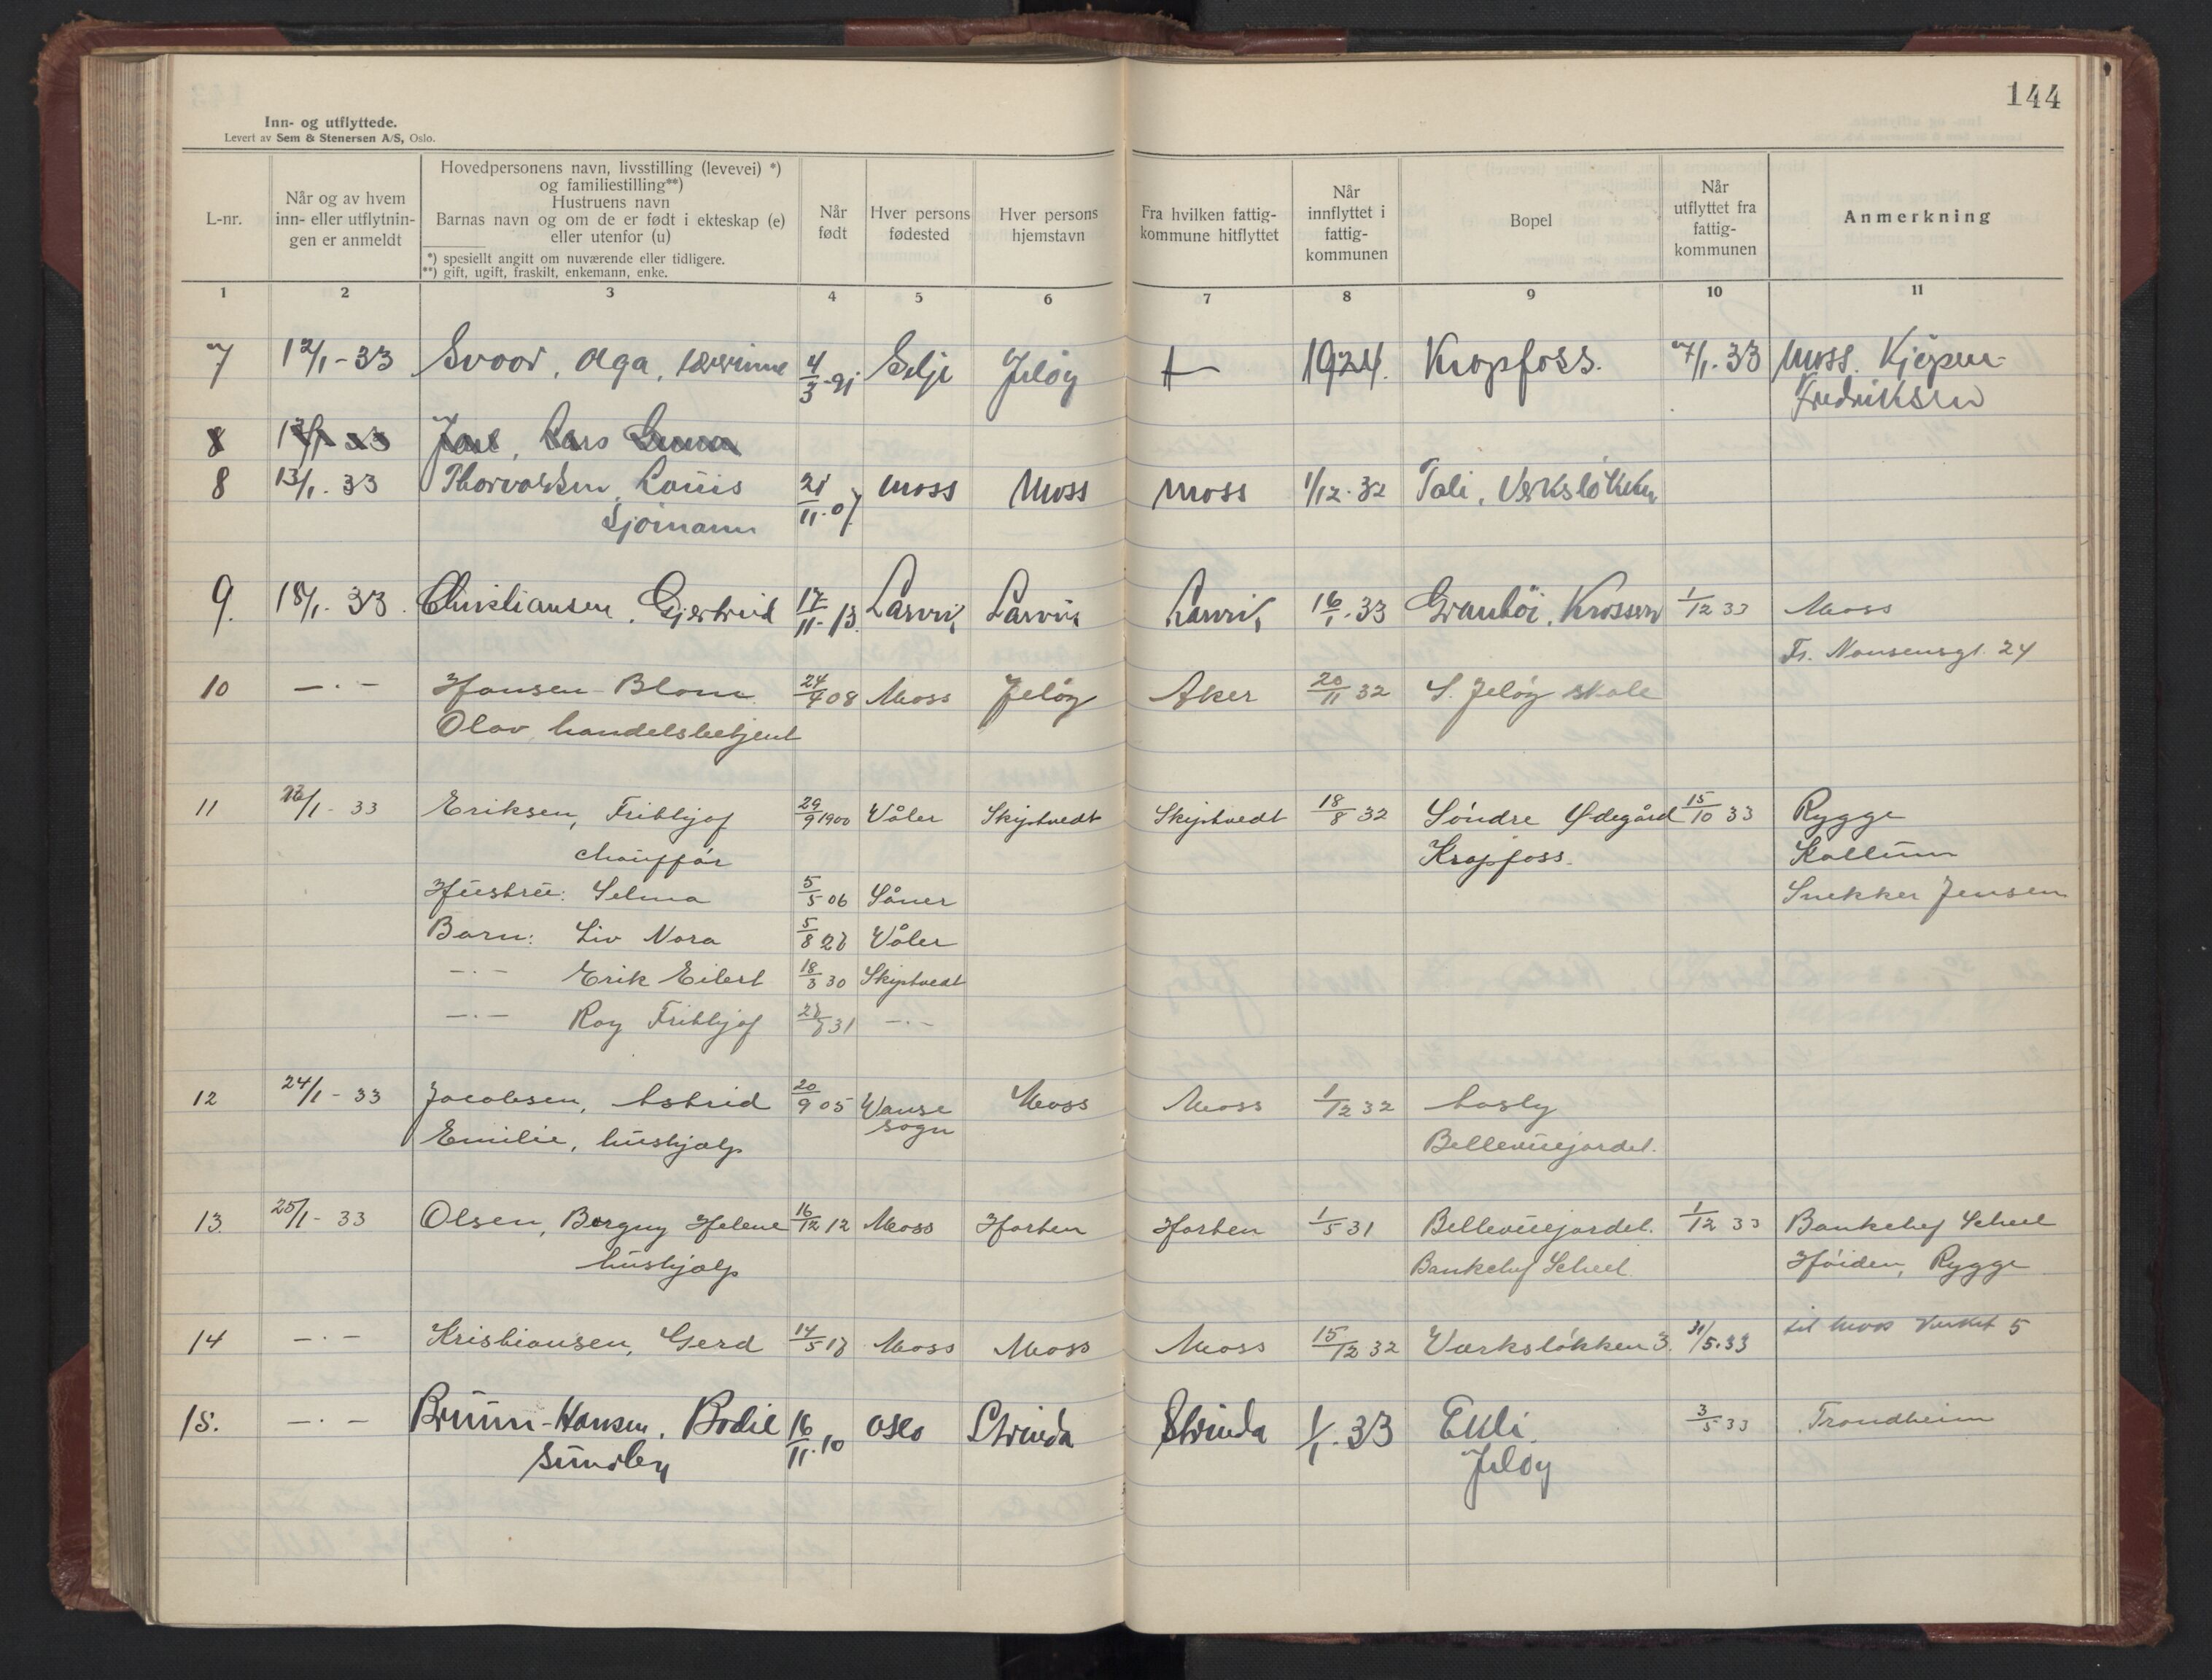 144
Inn- og utflyttede.
Levert av Sem & Stenersen A/S, Oslo.
L-nr.
Når og av hvem
inn- eller utflytnin-
gen er anmeldt
Hovedpersonens navn, livsstilling (levevei) *)
og familiestilling**)
Hustruens navn
Barnas navn og om de er født i ekteskap (e)
eller utenfor (u)
*) spesiellt angitt om nuværende eller tidligere.
**) gift, ugift, fraskilt, enkemann, enke.
Når
født
Hver persons
fødested
Hver persons
hjemstavn
Fra hvilken fattig-
kommune hitflyttet
Når
innflyttet i
fattig-
kommunen
Bopel
Når
utflyttet fra
fattig-
kommunen
Anmerkning
1 2 3 4 5 6 7 8 9 10 11
7 12/1-33 Svoor, Olga, lærerinne 4/3-91 Selje Jeløy 1924. Kropfoss. 7/1.33 Moss. Kjøpm.
Fredriksen
8 Lars
8 13/1.33 Thorvaldsen, Louis 21/11.07 Moss Moss Moss 1/12.32 Tali, Verksløkken
Sjømann
9. 18/1.33. Christiansen, Gjertrud 17/11-13 Larvik Larvik Larvik 16/1.33 Granbøi, Krossern 1/12 33 Moss
Fr. Nansensgt. 24
10 —.— Hansen-Blom 08 Moss Jeløy Aker 20/11 32 S. Jeløy skole
Olav, handelsbetjent
11 /1-33 Eriksen, Frithjof 29/9 1900 Våler Skiptvedt Skiptvedt 18/8 32 Söndre Ødegård 15/10 33 Rygge
chauffør Kropfoss. Kallum
Hustru: Selma 5/5 06 Såner Snekker Jensen
Barn: Liv Nora 5/8 28 Våler
—.— Erik Eilert 18/3 30 Skiptvedt
—.— Roy Frithjof 28/8 31 —.—
12 24/1-33 Jacobsen, Astrid 20/9 05 Vanse Moss Moss 1/12 32 Aasly
Emilie, hushjælp sogn Bellevuejordet.
13. 25/1-33 Olsen, Borgny Helene 16/12 12 Moss Horten Horten 1/5 31 Bellevuejordet. 1/12 33 Bankchef Scheel
hushjælp Bankchef Scheel. Høiden, Rygge
14 —.— Kristiansen, Gerd 14/5 18 Moss Moss Moss 15/12 32 Værksløkken 3. 31/5.33 til Moss Verket 5
15. —.— Bruun-Hansen, Bodil 16/11.10 Oslo Strinda Strinda 1/1.33 Ekli. 3/5 33 Trondheim
Sundby Jeløy